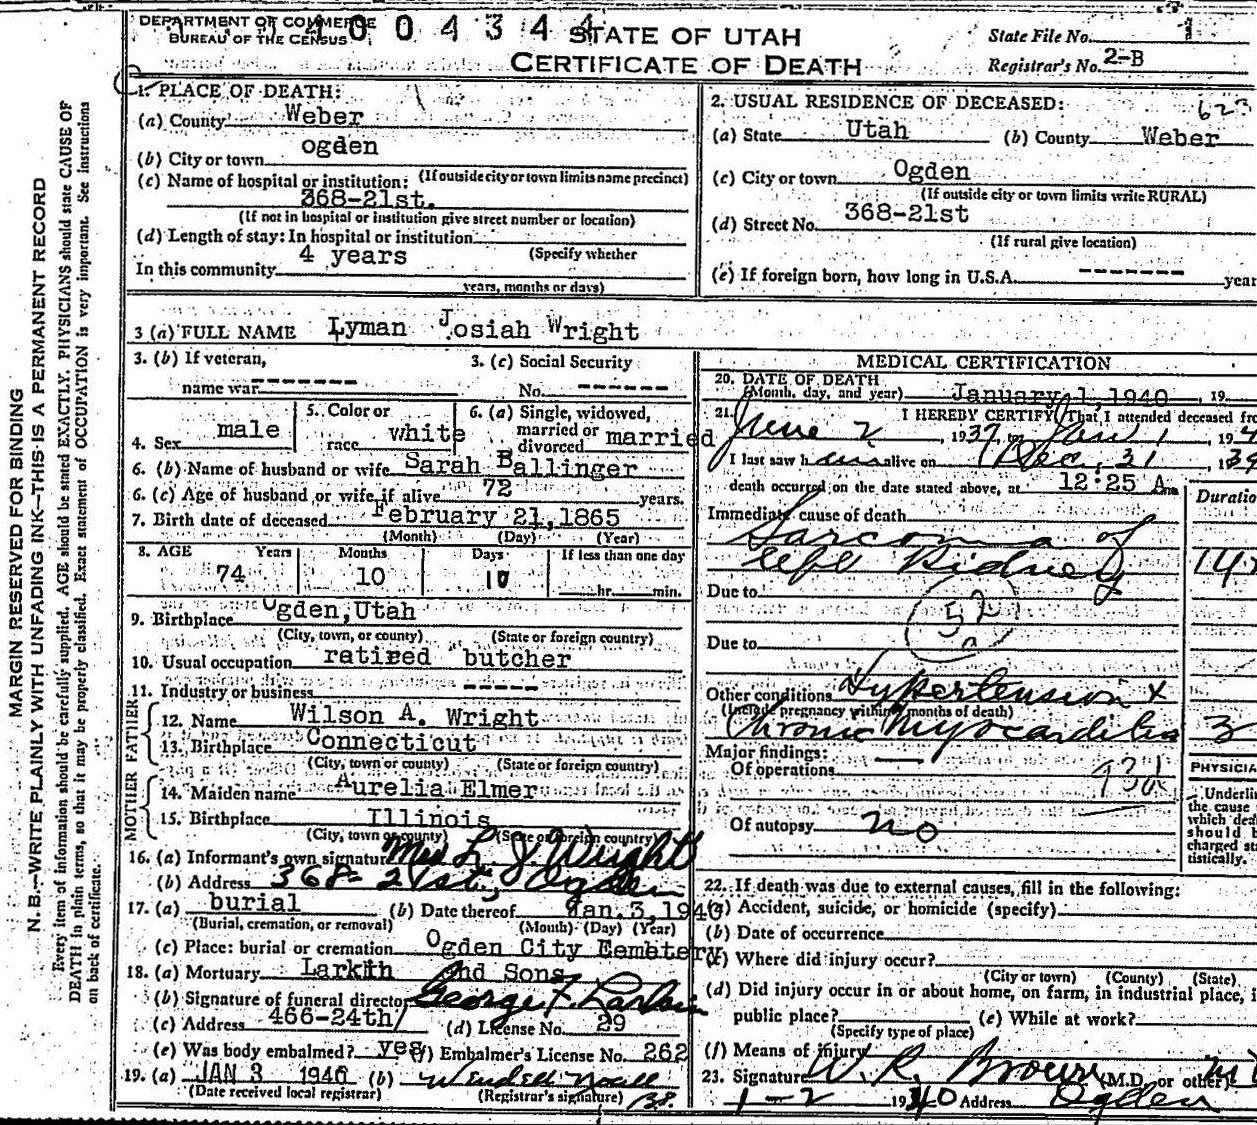 DEPARTMENT OF COMMERCE
BUREAU OF THE CENSUS
4 0 0 4 3 4 4
STATE OF UTAH
CERTIFICATE OF DEATH
State File No. 1
Registrar's No. 2-B
MARGIN RESERVED FOR BINDING
N. B.—WRITE PLAINLY WITH UNFADING INK—THIS IS A PERMANENT RECORD
Every item of information should be carefully supplied. AGE should be stated EXACTLY. PHYSICIANS should state CAUSE OF
DEATH in plain terms, so that it may be properly classified. Exact statement of OCCUPATION is very important. See instructions
on back of certificate.
1. PLACE OF DEATH:
(a) County Weber
(b) City or town ogden
(If outside city or town limits name precinct)
(c) Name of hospital or institution:
368-21st.
(If not in hospital or institution give street number or location)
(d) Length of stay: In hospital or institution
(Specify whether
In this community 4 years
years, months or days)
2. USUAL RESIDENCE OF DECEASED: 623
(a) State Utah (b) County Weber
(c) City or town Ogden
(If outside city or town limits write RURAL)
(d) Street No. 368-21st
(If rural give location)
(e) If foreign born, how long in U.S.A. ------- year
3 (a) FULL NAME Lyman Josiah Wright
3. (b) If veteran, 3. (c) Social Security
name war -------- No. ------
4. Sex male
5. Color or race white
6. (a) Single, widowed, married or divorced married
6. (b) Name of husband or wife Sarah Ballinger
6. (c) Age of husband or wife if alive 72 years.
7. Birth date of deceased February 21, 1865
(Month) (Day) (Year)
8. AGE Years Months Days If less than one day
74 10 10 hr. min.
9. Birthplace Ogden, Utah
(City, town, or county) (State or foreign country)
10. Usual occupation retired butcher
11. Industry or business -----
FATHER
12. Name Wilson A. Wright
13. Birthplace Connecticut
(City, town or county) (State or foreign country)
MOTHER
14. Maiden name Aurelia Elmer
15. Birthplace Illinois
(City, town or county) (State or foreign country)
16. (a) Informant's own signature Mrs L. J. Wright
(b) Address 368-21st, Ogden
17. (a) burial (b) Date thereof Jan. 3, 1940
(Burial, cremation, or removal) (Month) (Day) (Year)
(c) Place: burial or cremation Ogden City Eemetery
18. (a) Mortuary Larkin and Sons
(b) Signature of funeral director George F. Larkin
(c) Address 466-24th/ (d) License No. 29
(e) Was body embalmed? yes (f) Embalmer's License No. 262
19. (a) JAN 3 1940 (b) Wendell Noall
(Date received local registrar) (Registrar's signature)
MEDICAL CERTIFICATION
20. DATE OF DEATH
(Month, day, and year) January 1, 1940, 19
21. I HEREBY CERTIFY, That I attended deceased fr
June 2, 1937, to Jan 1, 194
I last saw him alive on Dec. 31, 1939
death occurred on the date stated above, at 12:25 A m
Duratio
Immediate cause of death
Sarcoma of
left Kidney
Due to
52
Due to
Other conditions Hypertension +
(Include pregnancy within 3 months of death)
Chronic Myocarditis 3
Major findings:
Of operations
PHYSICIA
Underlin
the cause
which dea
should b
charged sta
tistically.
Of autopsy no
22. If death was due to external causes, fill in the following:
(a) Accident, suicide, or homicide (specify)
(b) Date of occurrence
(c) Where did injury occur?
(City or town) (County) (State)
(d) Did injury occur in or about home, on farm, in industrial place, i
public place? (e) While at work?
(Specify type of place)
(f) Means of injury
23. Signature W. R. Brown (M.D. or other)
1-2 1940 Address Ogden